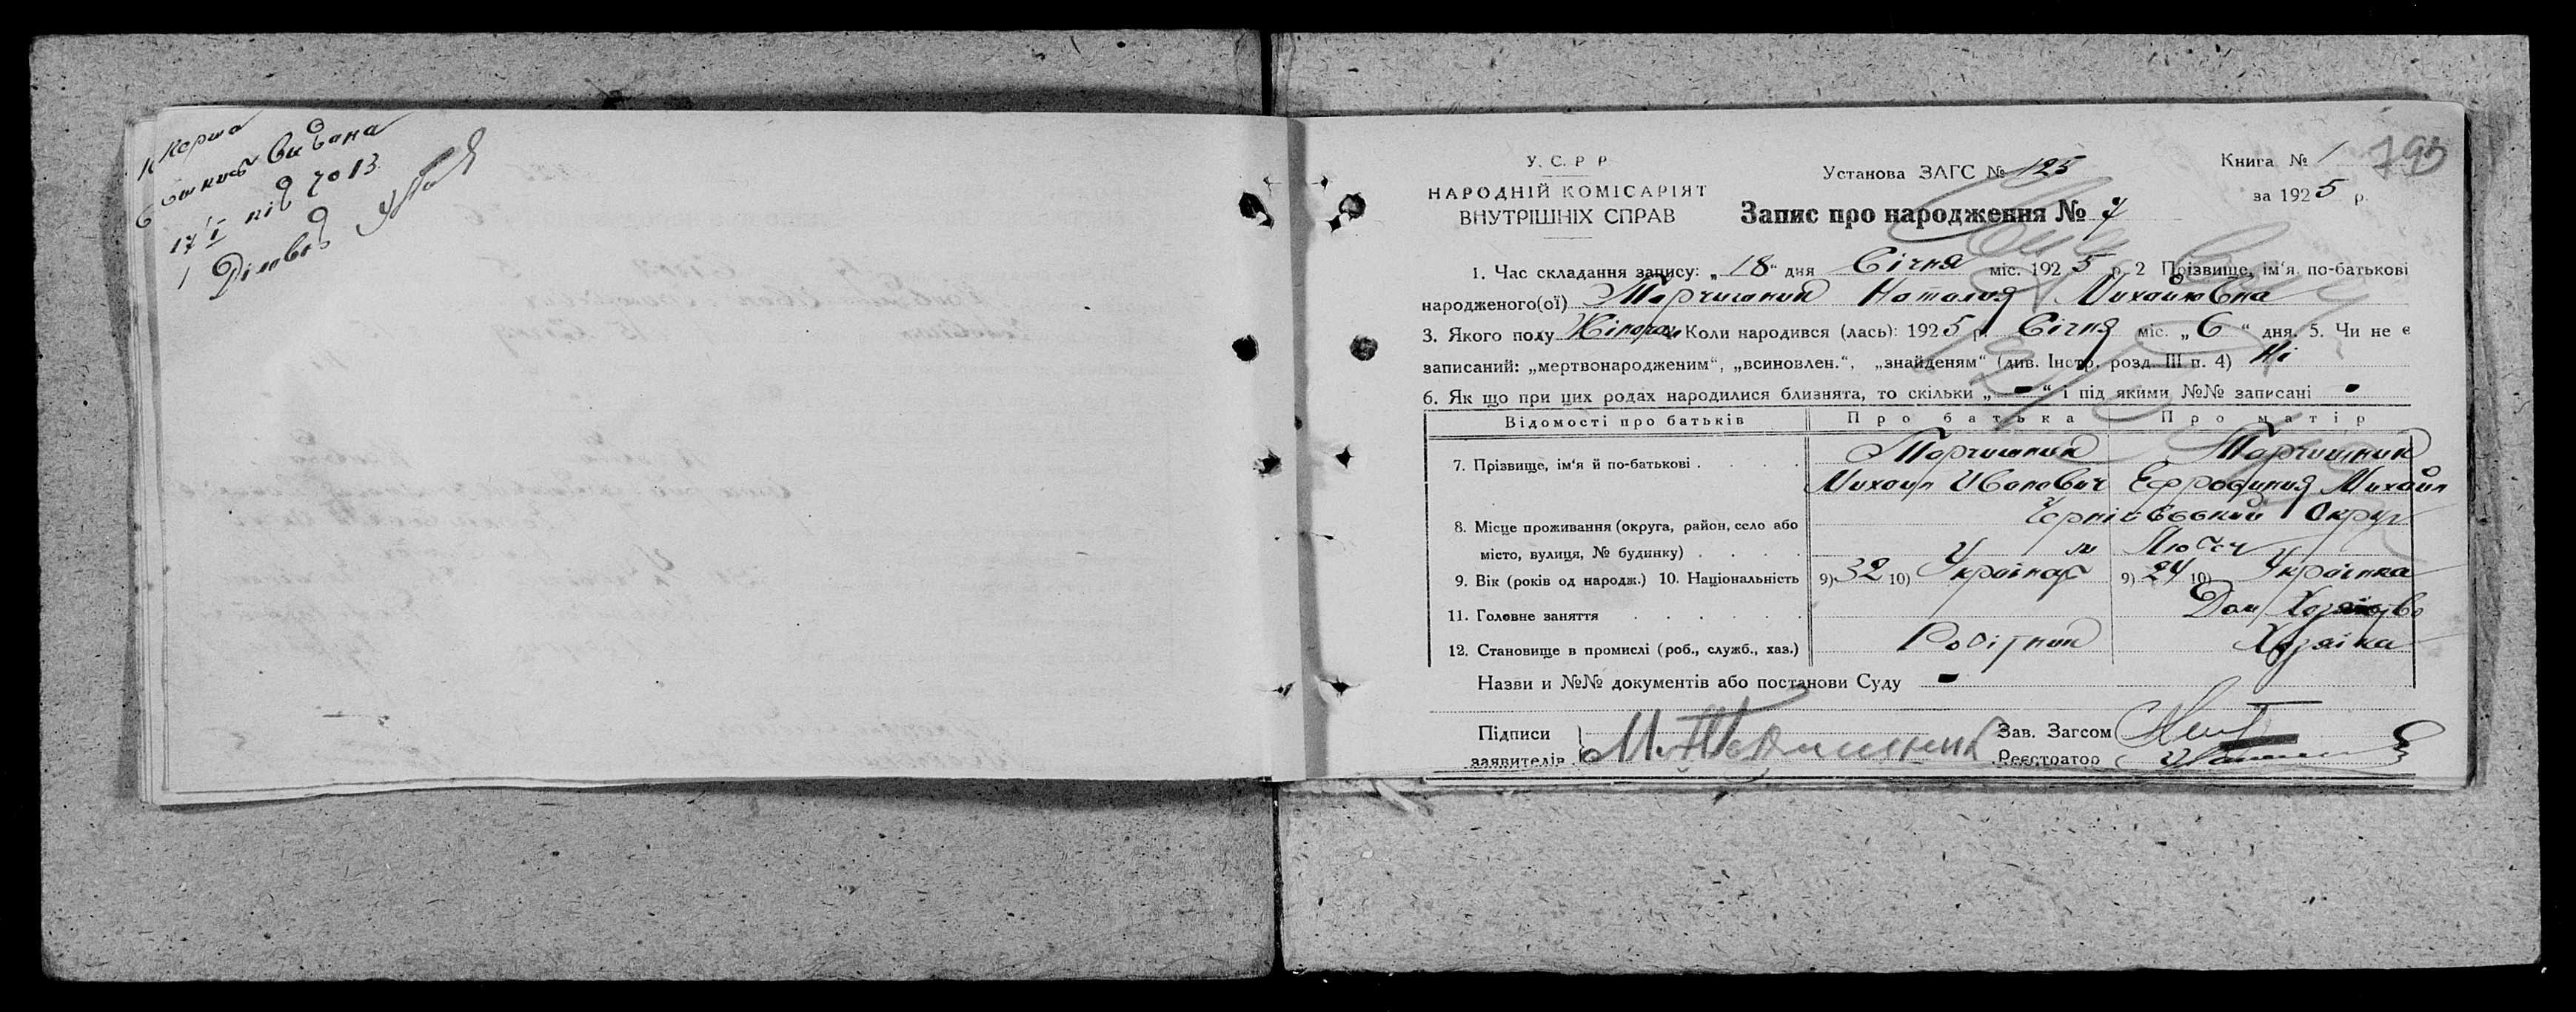 У. С. Р Р
НАРОДНІЙ КОМІСАРІЯТ
ВНУТРІШНІХ СПРАВ
Установа ЗАГС № 125
Запис про народження № 7
Книга № 1
за 1925 р.
193
1. Час складання запису: „18“ дня Січня міс. 1925 р. 2 Прізвище, ім‘я, по-батькові
народженого(ої) Торчишник Наталія Михайловна
3. Якого полу Жіночої Коли народився (лась): 1925 р. Січня міс. „6“ дня. 5. Чи не є
записаний: „мертвонародженим“, „всиновлен.“, „знайденям“ (див. Інстр. розд. III п. 4) Ні
6. Як що при цих родах народилися близнята, то скільки „-“ і під якими №№ записані -
Відомості про батьків Про батька Про матір
7. Прізвище, ім‘я й по-батькові . . . . Торчишник Торчишник
Михаил Иванович Ефросиния Михаил
8. Місце проживання (округа, район, село або Чернігівський Округ
місто, вулиця, № будинку) . . . . м Любеч
9. Вік (років од народж.) 10. Національність 9) 32 10) Українец 9) 24 10) Українка
11. Головне заняття . . . . . . Дом Хозяйство
12. Становище в промислі (роб., служб., хаз.) Робітник Хозяіка
Назви и №№ документів або постанови Суду -
Підписи
заявителів М. Торчишник
Зав. Загсом
Реєстратор
видана
17/I під 7013